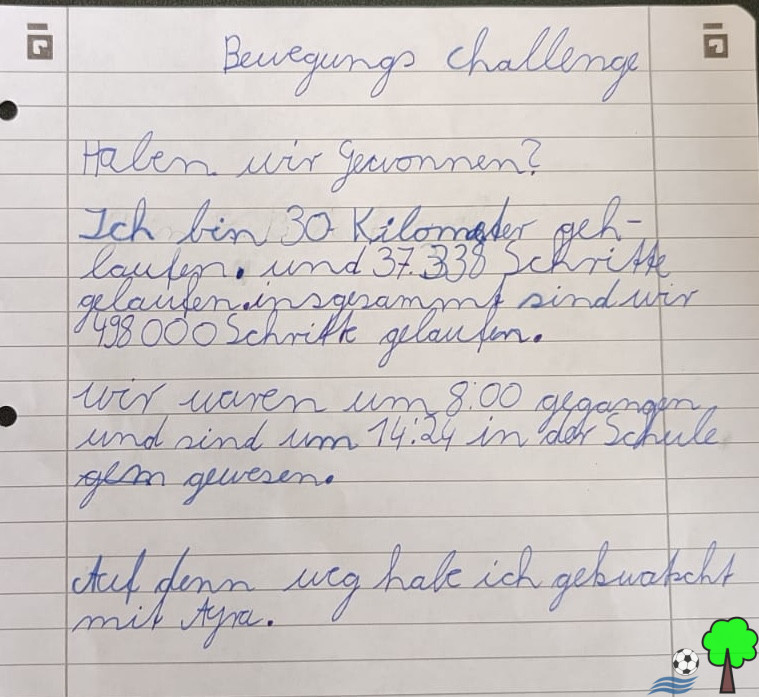 Bewegungs challenge
Haben wir gewonnen?
Ich bin 30 Kilometer geh-
laufen. und 37.338 Schritte
gelaufen.insgesammt sind wir
498000 Schritte gelaufen.
wir waren um 8:00 gegangen
und sind um 14:24 in der Schule
gewesen.
Auf denn weg habe ich gekwatscht
mit Ayra.